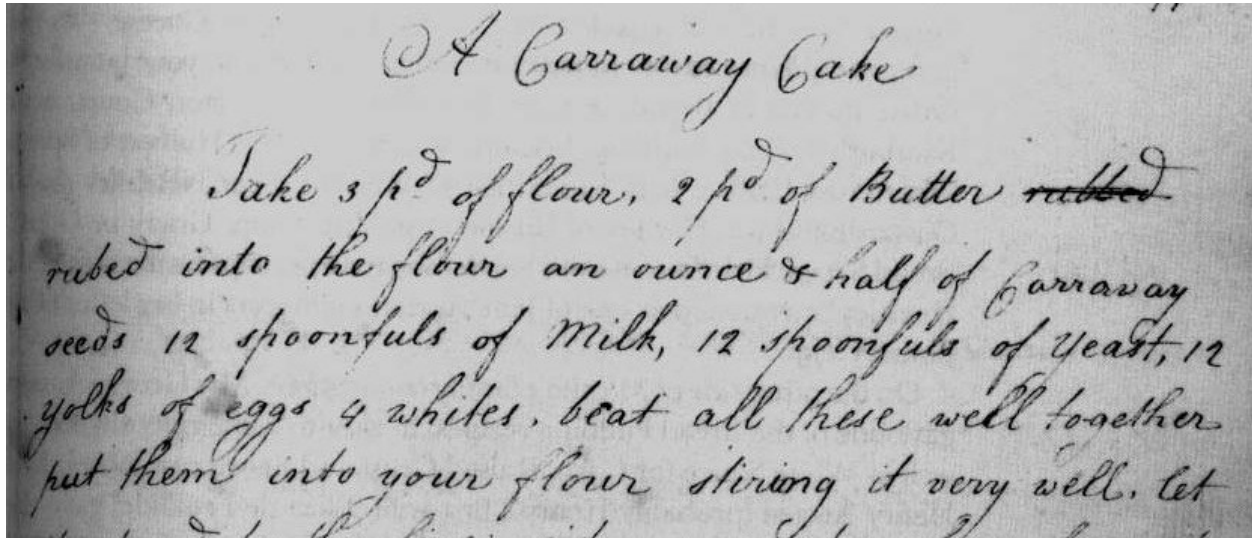 A Carraway Cake
Take 3 pd of flour, 2 pd of Butter rubbed
rubed into the flour an ounce & half of Carraway
seeds 12 spoonfuls of Milk, 12 spoonfuls of Yeast, 12
yolks of eggs 4 whites. beat all these well together
put them into your flour stiring it very well. let